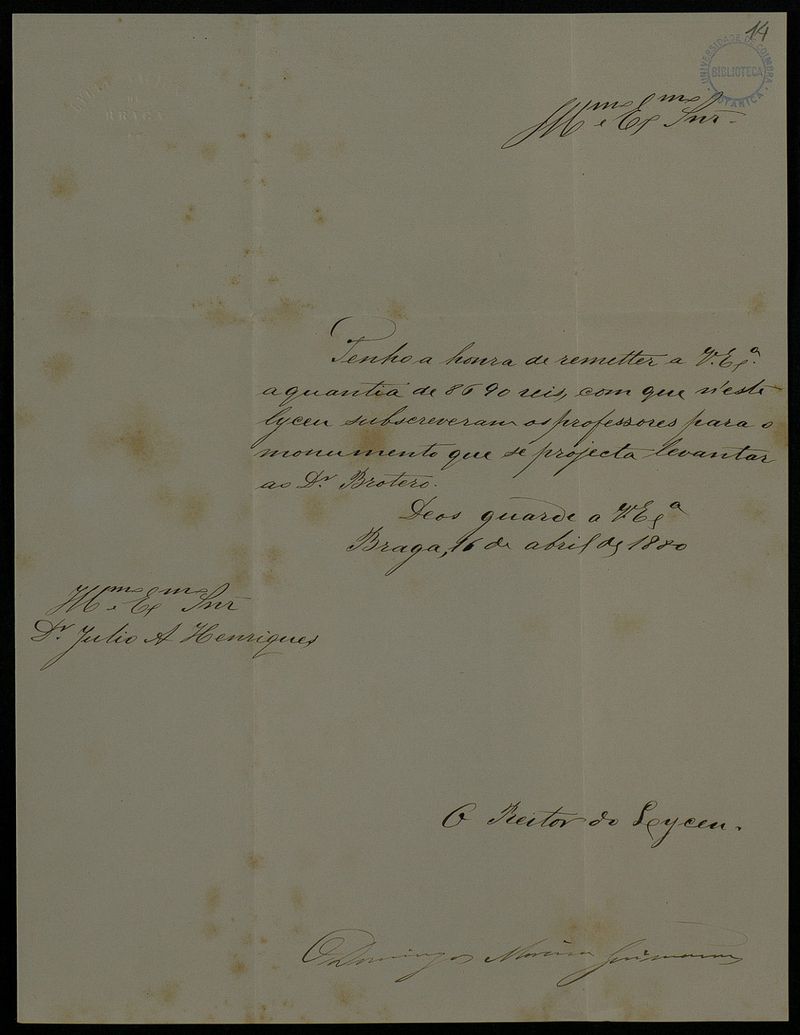 14
UNIVERSIDADE DE COIMBRA
BIBLIOTECA
BOTANICA
BRAGA
Ill.mo e Ex.mo Snr.
Tenho a honra de remetter a V. Ex.ª
a quantia de 8690 reis, com que n'este
lyceu subscreveram os professores para o
monumento que se projecta levantar
ao Dr. Brotero.
Deos guarde a V. Ex.ª
Braga, 16 de abril de 1880
Ill.mo e Ex.mo Snr
Dr. Julio A Henriques
O Reitor do Lyceu.
Domingos Moreira Guimarães